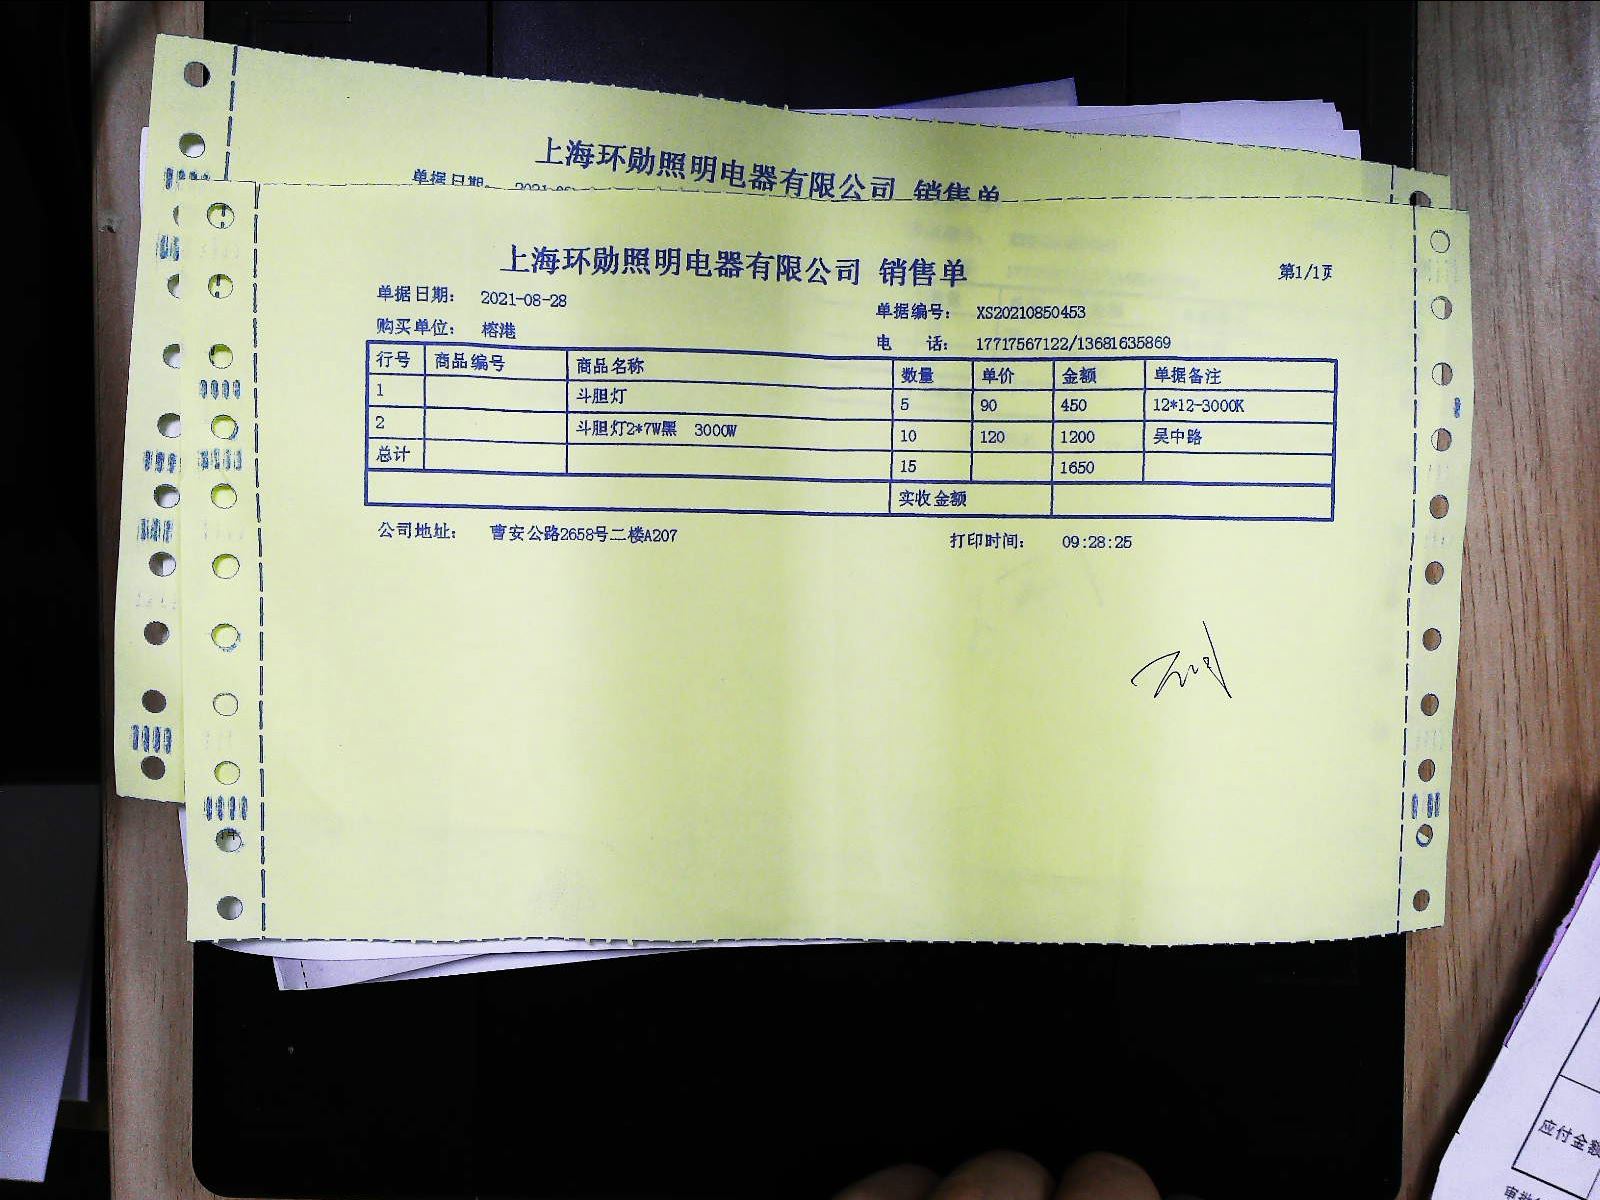 上海环勋照明电器有限公司 销售单
单据日期:
上海环勋照明电器有限公司 销售单
第1/1页
单据日期: 2021-08-28
单据编号: XS20210850453
购买单位: 榕港
电 话: 17717567122/13681635869
行号 商品编号 商品名称 数量 单价 金额 单据备注
1 斗胆灯 5 90 450 12*12-3000K
2 斗胆灯2*7W黑 3000W 10 120 1200 吴中路
总计 15 1650
实收金额
公司地址: 曹安公路2658号二楼A207
打印时间: 09:28:25
应付金额